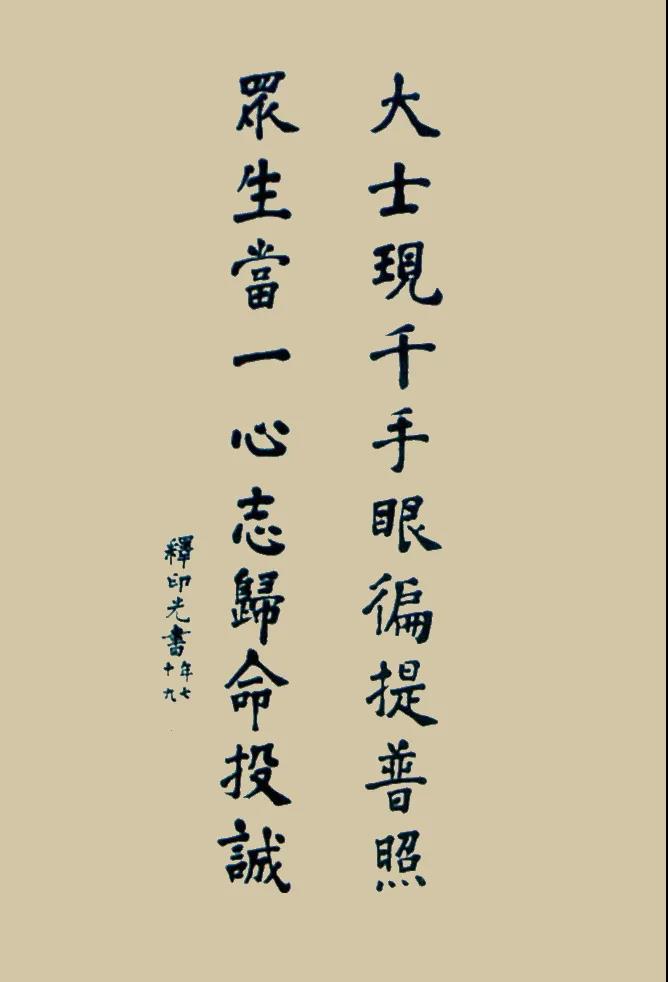 大士現千手眼徧提普照
眾生當一心志歸命投誠
釋印光書年七十九